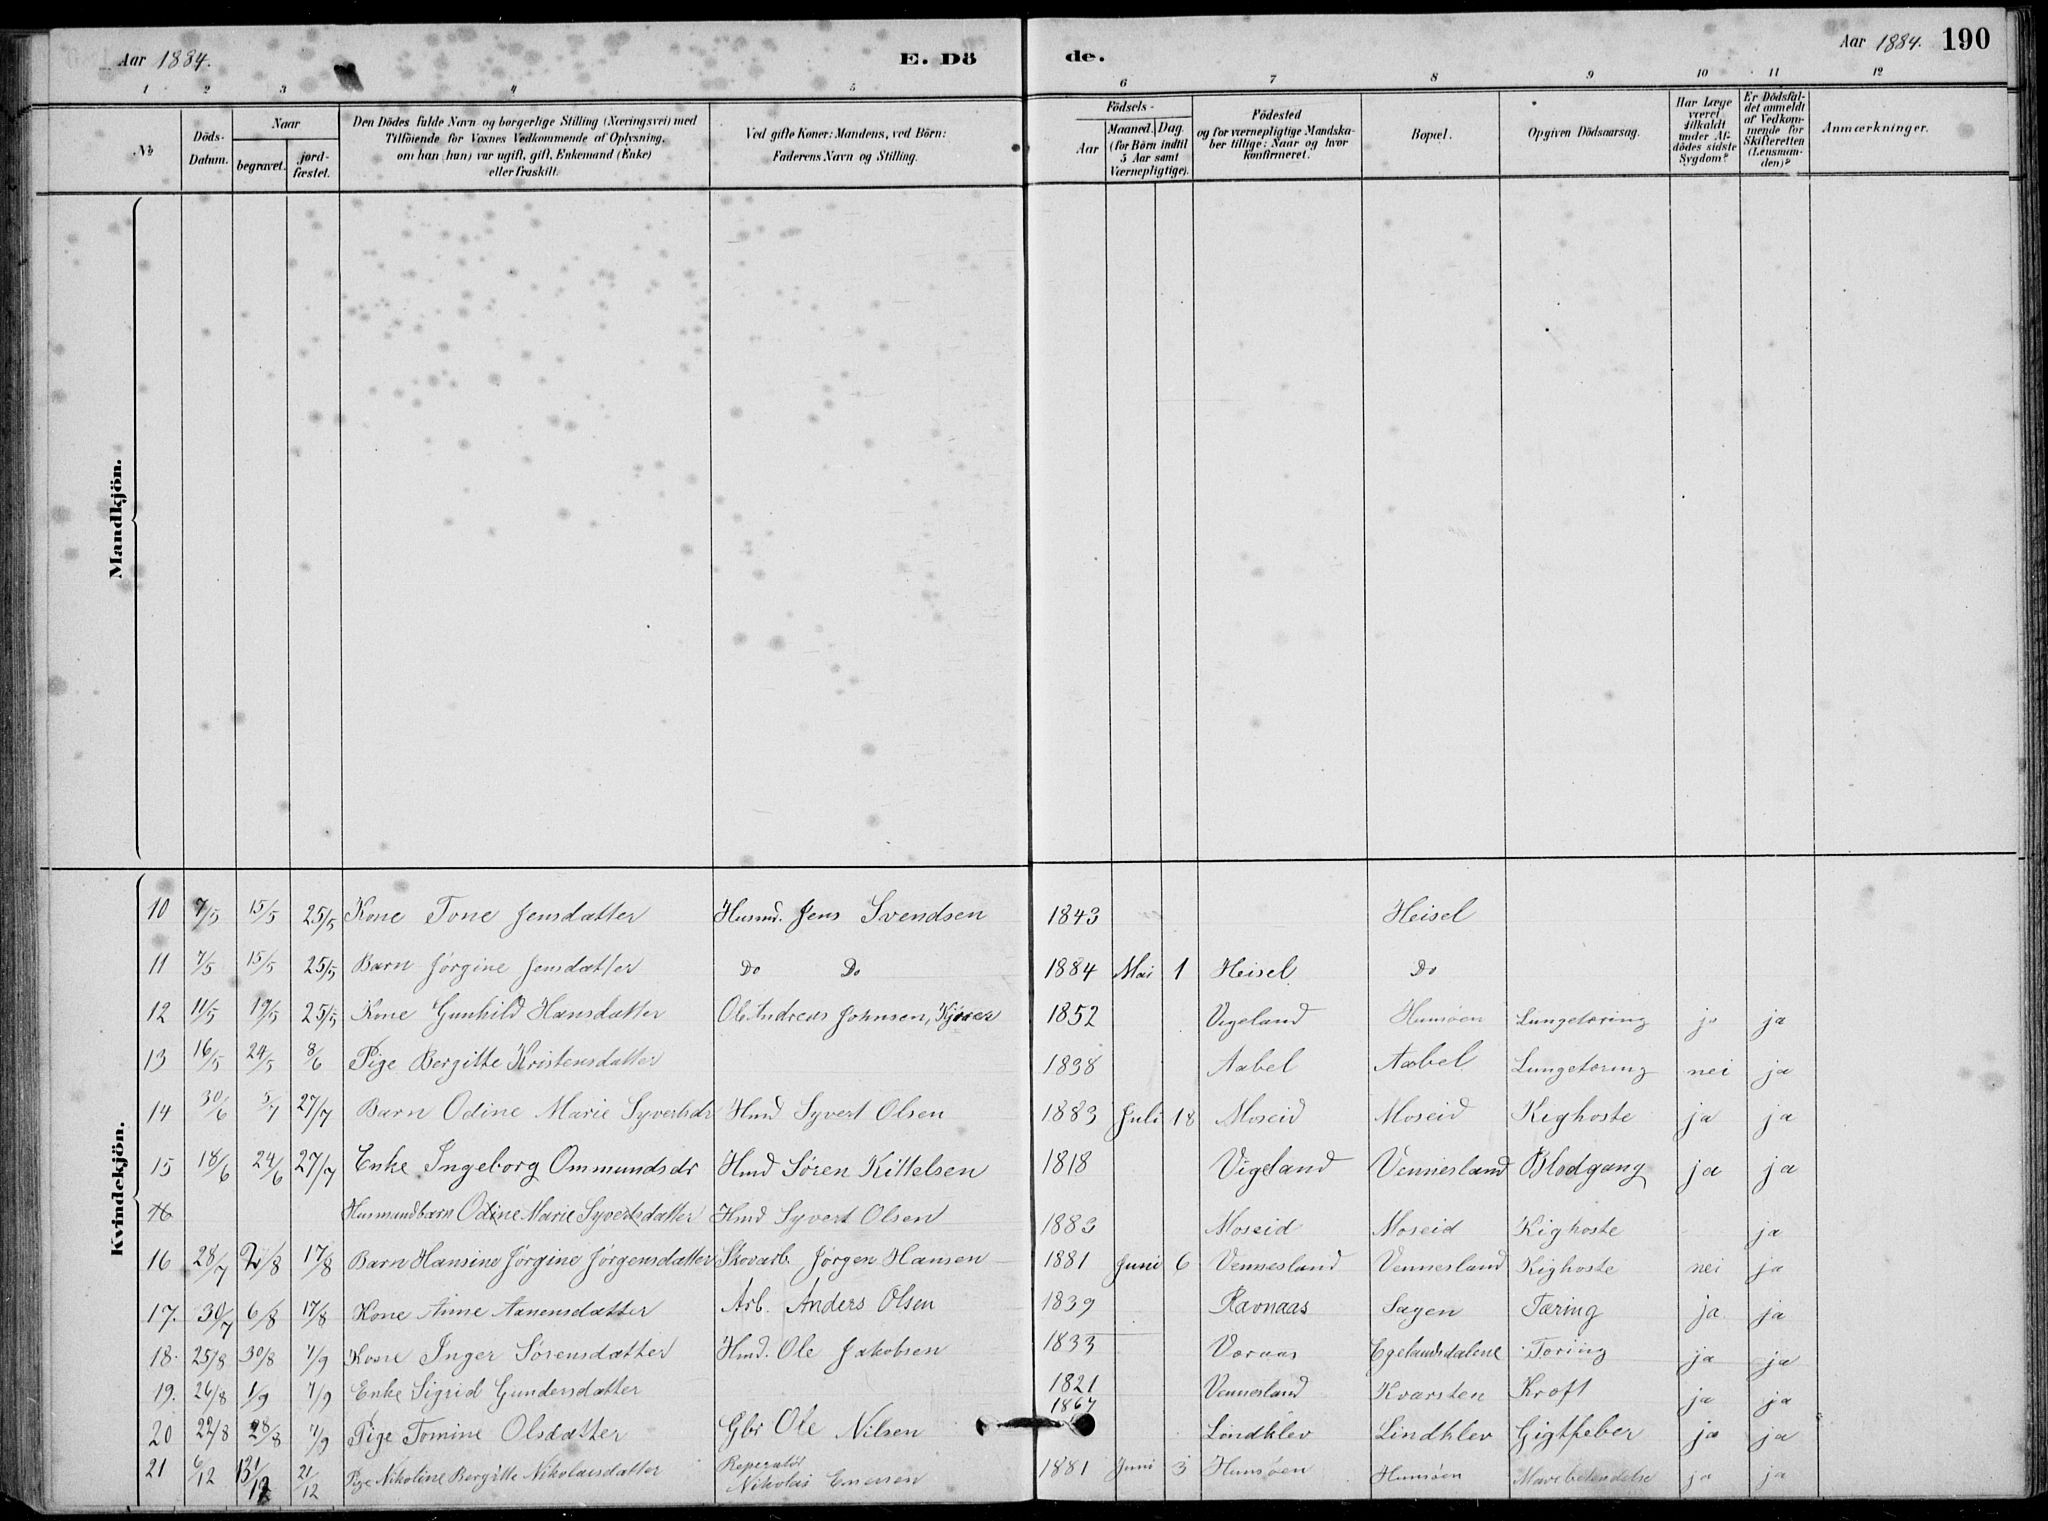 Aar 1884. E. Dö de. Aar 1884. 190
1 2 3 4 5 6 7 8 9 10 11 12
No
Döds-Datum.
Naar
begravet.
jord-fæstet.
Den Dödes fulde Navn og borgerlige Stilling (Næringsvei) med
Tilföiende for Voxnes Vedkommende af Oplysning,
om han (hun) var ugift, gift, Enkemand (Enke)
eller fraskilt.
Ved gifte Koner: Mandens, ved Börn:
Faderens Navn og Stilling.
Födsels-
Aar
Maaned. Dag.
(for Börn indtil
5 Aar samt
Værnepligtige).
Födested
og for værnepligtige Mandska-
ber tillige: Naar og hvor
konfirmeret.
Bopæl.
Opgiven Dödsaarsag.
Har Læge
været
tilkaldt
under Af-
dödes sidste
Sygdom?
Er Dödsfal-
det anmeldt
af Vedkom-
mende for
Skifteretten
(Lensman-
den)?
Anmærkninger.
Mandkjön.
Kvindekjön.
10 7/5 15/5 25/5 Kone Tone Jensdatter Husmd. Jens Svendsen 1843 Heisel
11 7/5 15/5 25/5 Barn Jörgine Jensdatter Do Do 1884 Mai 1 Heisel Do
12 11/5 19/5 25/5 Kone Gunhild Hansdatter Ole Andreas Johnsen, 1852 Vigeland Hunsöen Lungetæring ja ja
13 16/5 24/5 8/6 Pige Bergitte Kristensdatter 1838 Aabel Aabel Lungetæring nei ja
14 30/6 5/7 27/7 Barn Odine Marie Syvertsdr Hmd Syvert Olsen 1883 Juli 18 Moseid Moseid Kighoste ja ja
15 18/6 24/6 27/7 Enke Ingeborg Ommundsdr Hmd Sören Kittelsen 1818 Vigeland Vennesland Blodgang ja ja
16 Husmandbarn Odine Marie Syvertsdatter Hmd Syvert Olsen 1883 Moseid Moseid Kighoste ja
16 28/7 2/8 17/8 Barn Hansine Jörgine Jörgensdatter Skovarb. Jörgen Hansen 1881 Juni 6 Vennesland Vennesland Kighoste nei ja
17. 30/7 6/8 17/8 Kone Anne Aanensdatter Arb. Anders Olsen 1839 Ravnaas Sagen Tæring ja. ja
18. 25/8 30/8 7/9 Kone Inger Sörensdatter Hmd. Ole Jakobsen 1833 Voraas Egelandsdalene Tæring ja ja
19. 26/8 1/9 7/9 Enke Sigrid Gundersdatter 1821 Vennesland Kvarsten Kræft ja ja
20 22/8 28/8 7/9 Pige Tomine Olsdatter Gbr Ole Nilsen 1867 Lindklev Lindklev Gigtfeber ja ja
21 6/12 /12 21/12 Pige Nikoline Bergitte Nikolaisdatter Reperatör
Nikolai 1881 Juni 3 Hunsöen Hunsöen Mavebetendelse ja ja